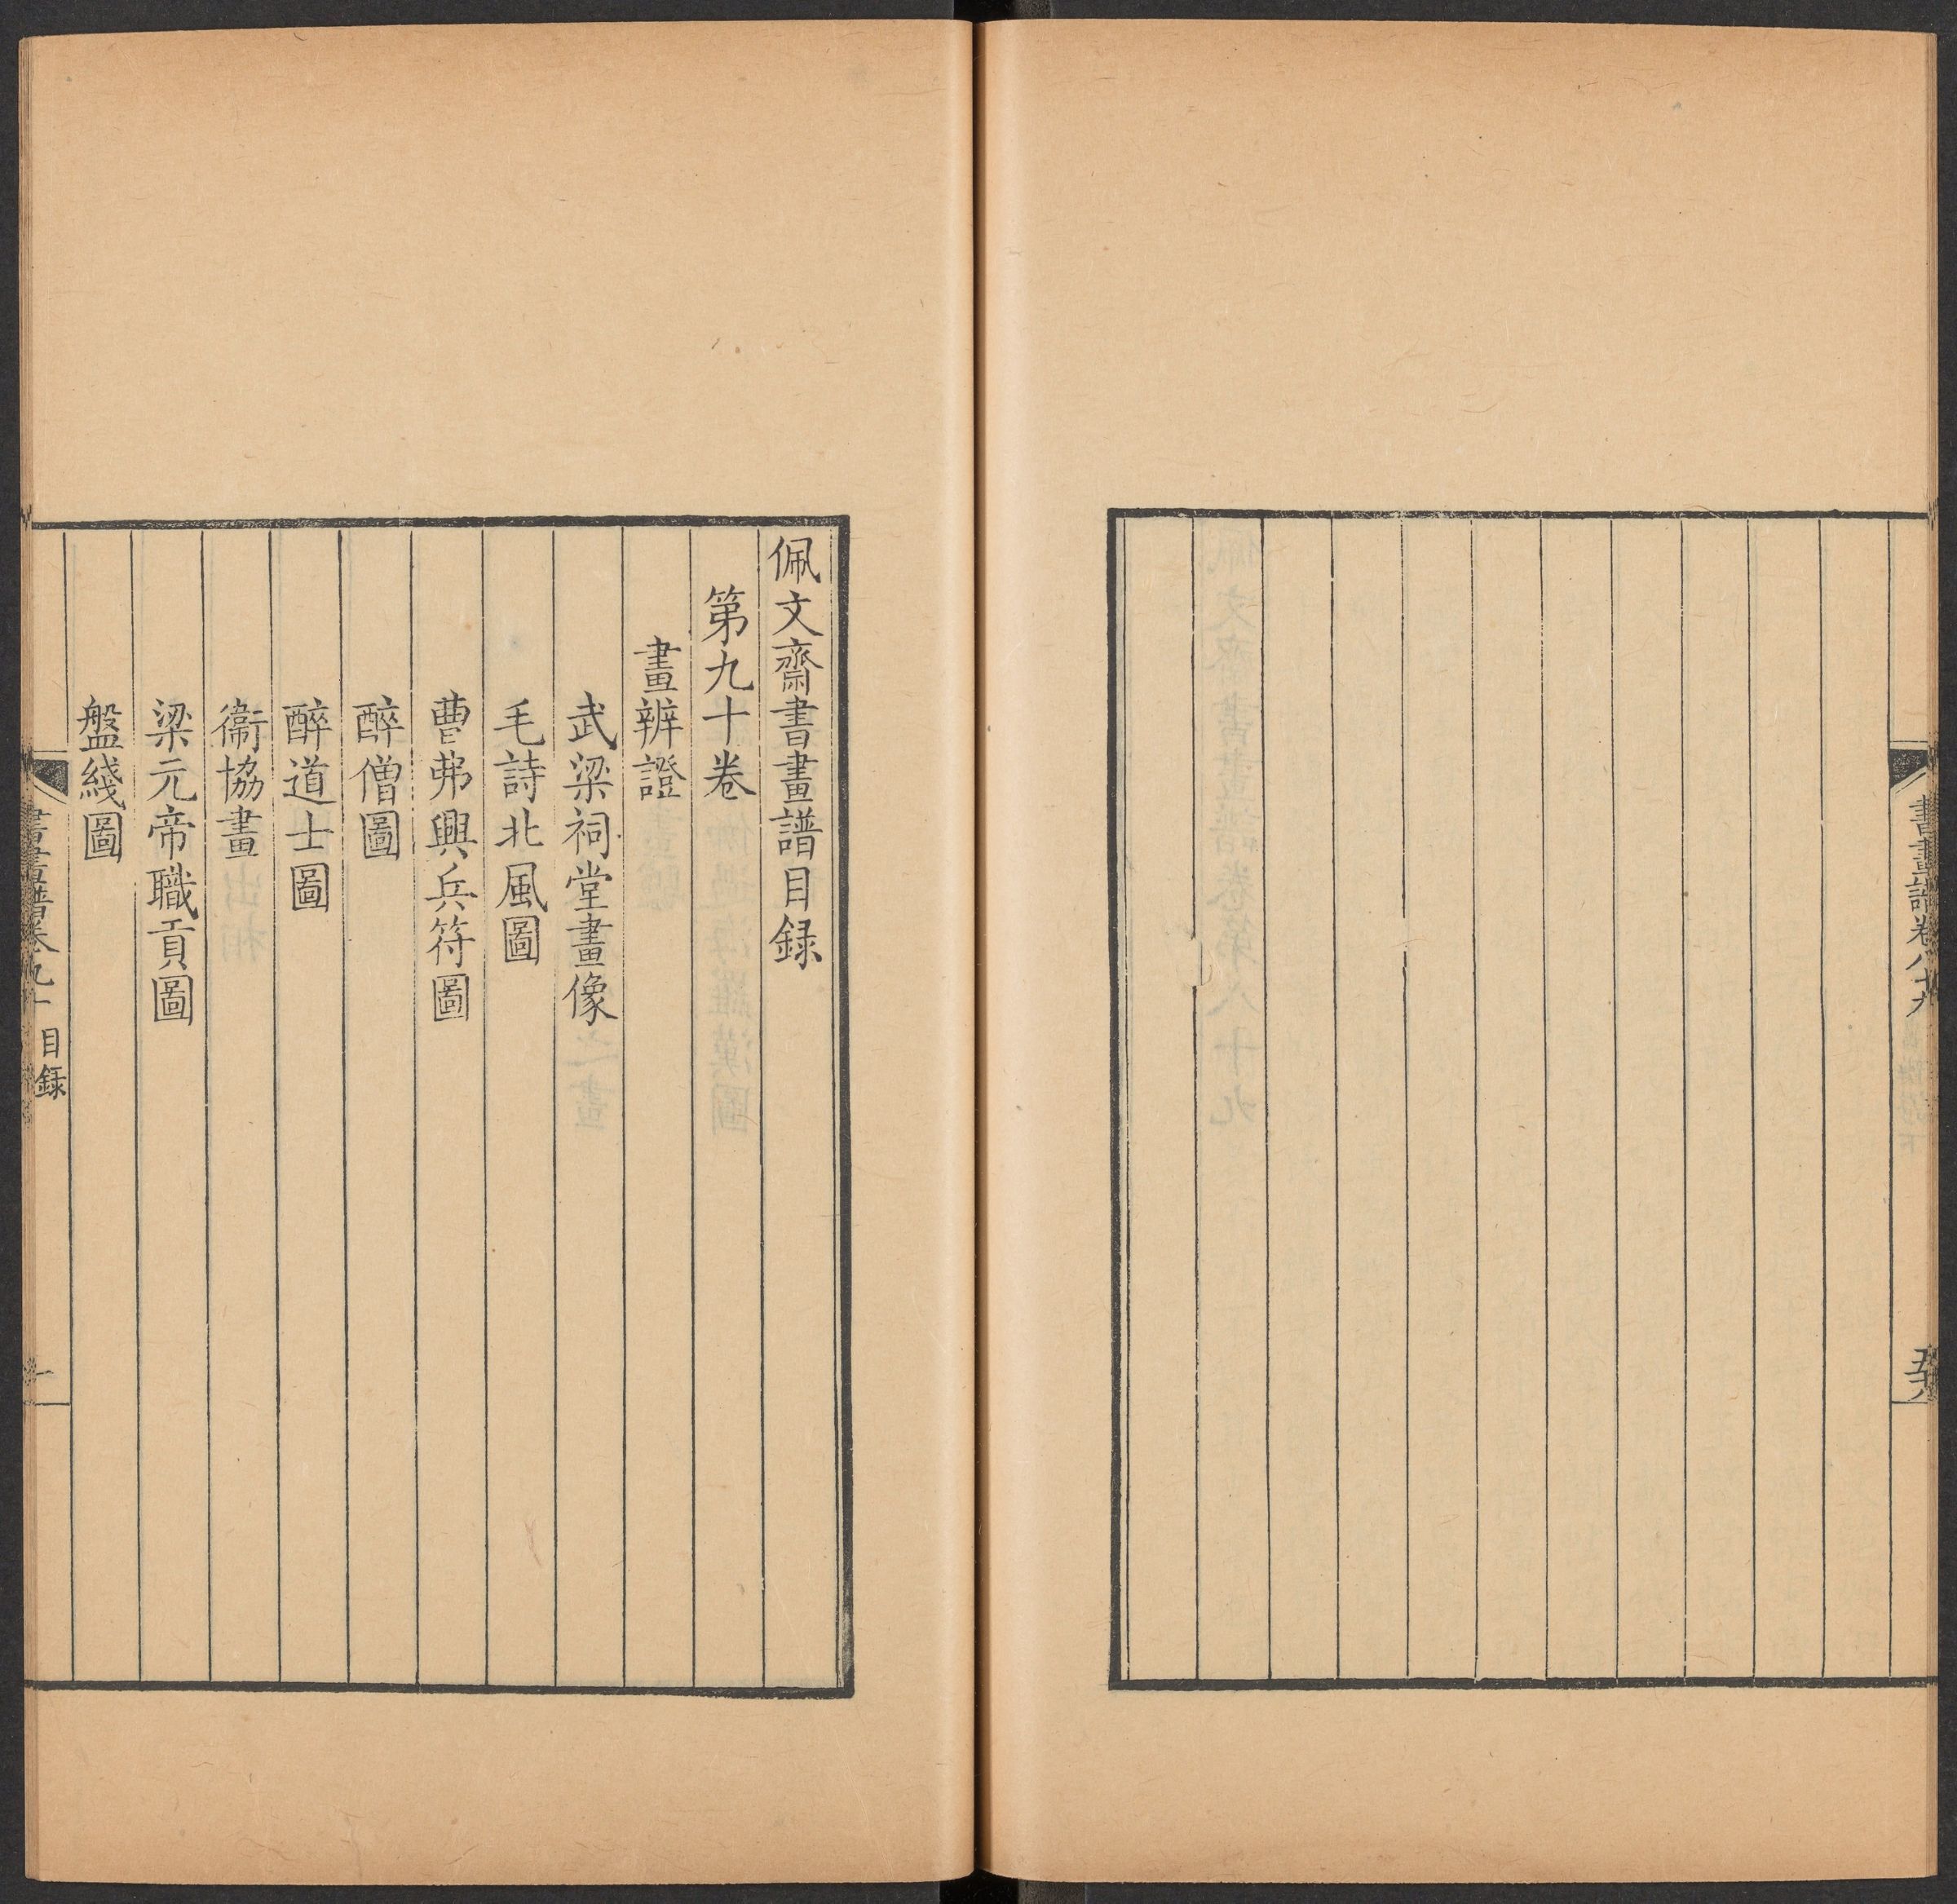 書畫譜卷八十九
佩文齋書畫譜目録
第九十卷
畫辨證
武梁祠堂畫像
毛詩北風圖
曹弗興兵符圖
醉僧圖
醉道士圖
衞協畫
梁元帝職貢圖
盤綫圖
書畫譜卷九十 目録
一